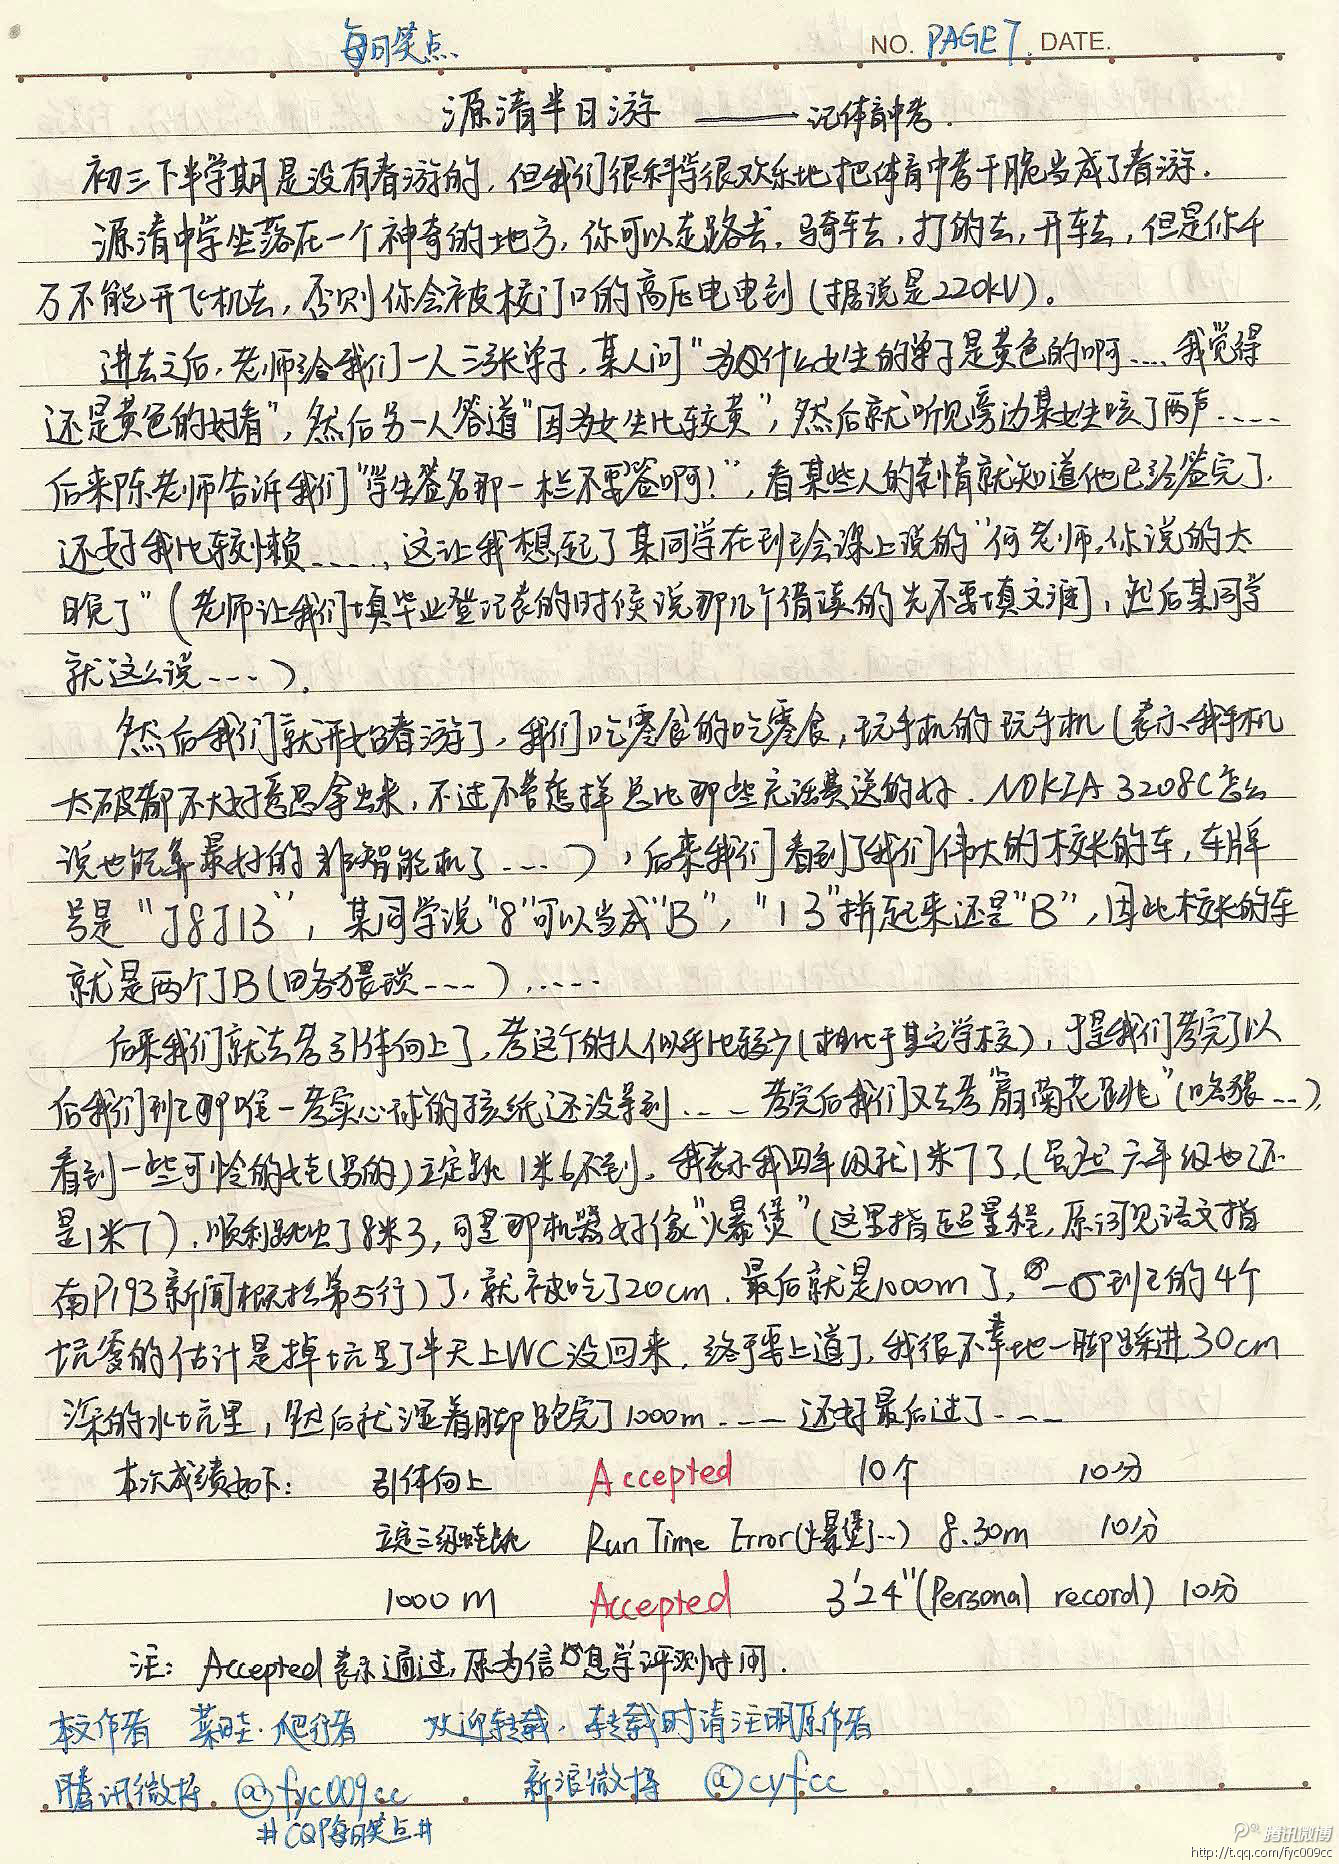 每日笑点
NO. PAGE7. DATE.
源清半日游 ——记体育中考.
初三下半学期是没有春游的,但我们很科学很欢乐地把体育中考干脆当成了春游.
源清中学坐落在一个神奇的地方,你可以走路去,骑车去,打的去,开车去,但是你千
万不能开飞机去,否则你会被校门口的高压电电到(据说是220kV)。
进去之后,老师给我们一人三张单子,某人问"为什么女生的单子是黄色的啊....我觉得
还是黄色的好看",然后另一人答道"因为女生比较黄",然后就听见旁边某女生咳了两声.....
后来陈老师告诉我们"学生签名那一栏不要签啊!",看某些人的表情就知道他已经签完了.
还好我比较懒.....,这让我想起了某同学在班会课上说的"何老师,你说的太
晚了"(老师让我们填毕业登记表的时候说那几个借读的先不要填,然后某同学
就这么说....).
然后我们就开始春游了,我们吃零食的吃零食,玩手机的玩手机(表示我手机
太破都不大好意思拿出来,不过不管怎样总比那些充话费送的好.NOKIA 3208C怎么
说也能算最好的非智能机了....),后来我们看到了我们伟大的校长的车,车牌
号是"J8J13",某同学说"8"可以当成"B","13"拼起来还是"B",因此校长的车
就是两个JB(略猥琐....).....
后来我们就去考引体向上了,考这个的人似乎比较少(相比于其它学校),于是我们考完了以
后我们班那唯一考实心球的孩纸还没等到....考完后我们又去考"扇菊花跳"(略猥...),
看到一些可怜的娃(男的)立定跳1米6不到,我表示我四年级就1米7了,(虽然六年级也还
是1米7).顺利跳出了8米3,可是那机器好像"爆堡"(这里指超量程,原词见语文指
南P193新闻概括第5行)了,就被吃了20cm.最后就是1000m了,一班的4个
坑爹的估计是掉坑里了半天上WC没回来,终于要上道了,我很不幸地一脚踩进30cm
深的水坑里,然后就湿着脚跑完了1000m....还好最后过了....
本次成绩如下: 引体向上 Accepted 10个 10分
立定三级蛙跳 Run Time Error(爆堡了...) 8.30m 10分
1000m Accepted 3'24"(Personal record) 10分
注: Accepted表示通过,原为信息学评测时用.
本文作者 菜畦·爬行者 欢迎转载,转载时请注明原作者
腾讯微博 @fyc009cc 新浪微博 @cyfcc
#CQP每日笑点#
腾讯微博
http://t.qq.com/fyc009cc